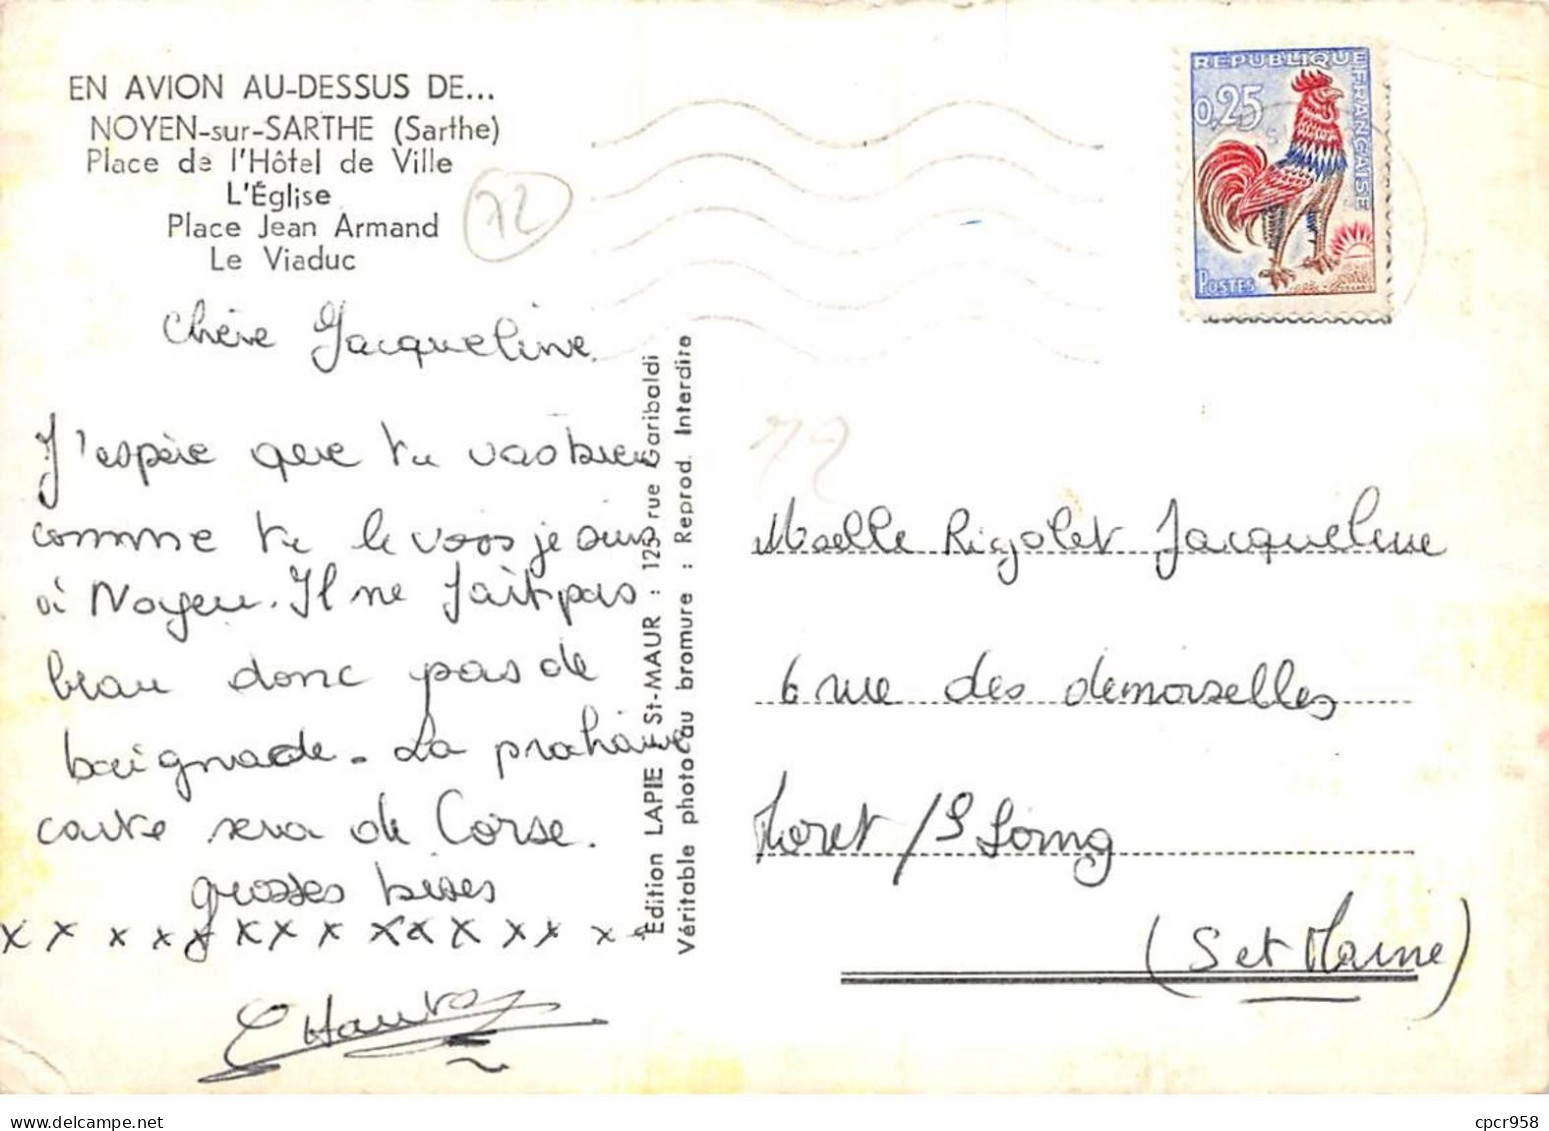 EN AVION AU-DESSUS DE...
NOYEN-sur-SARTHE (Sarthe)
Place de l'Hôtel de Ville
L'Église
Place Jean Armand
Le Viaduc
72
REPUBLIQUE FRANÇAISE
0,25
POSTES
Chère Jacqueline
J'espère que tu vas bien
comme tu le vois je suis
à Noyen. Il ne fait pas
beau donc pas de
baignade. La prochaine
carte sera de Corse.
grosses bises
x x x x x x x x x x x x x x x
Edition LAPIE St-MAUR : 123 rue Garibaldi
Véritable photo au bromure : Reprod. Interdite
72
Moelle Rigolet Jacqueline
6 rue des demoiselles
Moret /S Loing
(S et Marne)
cpcr958